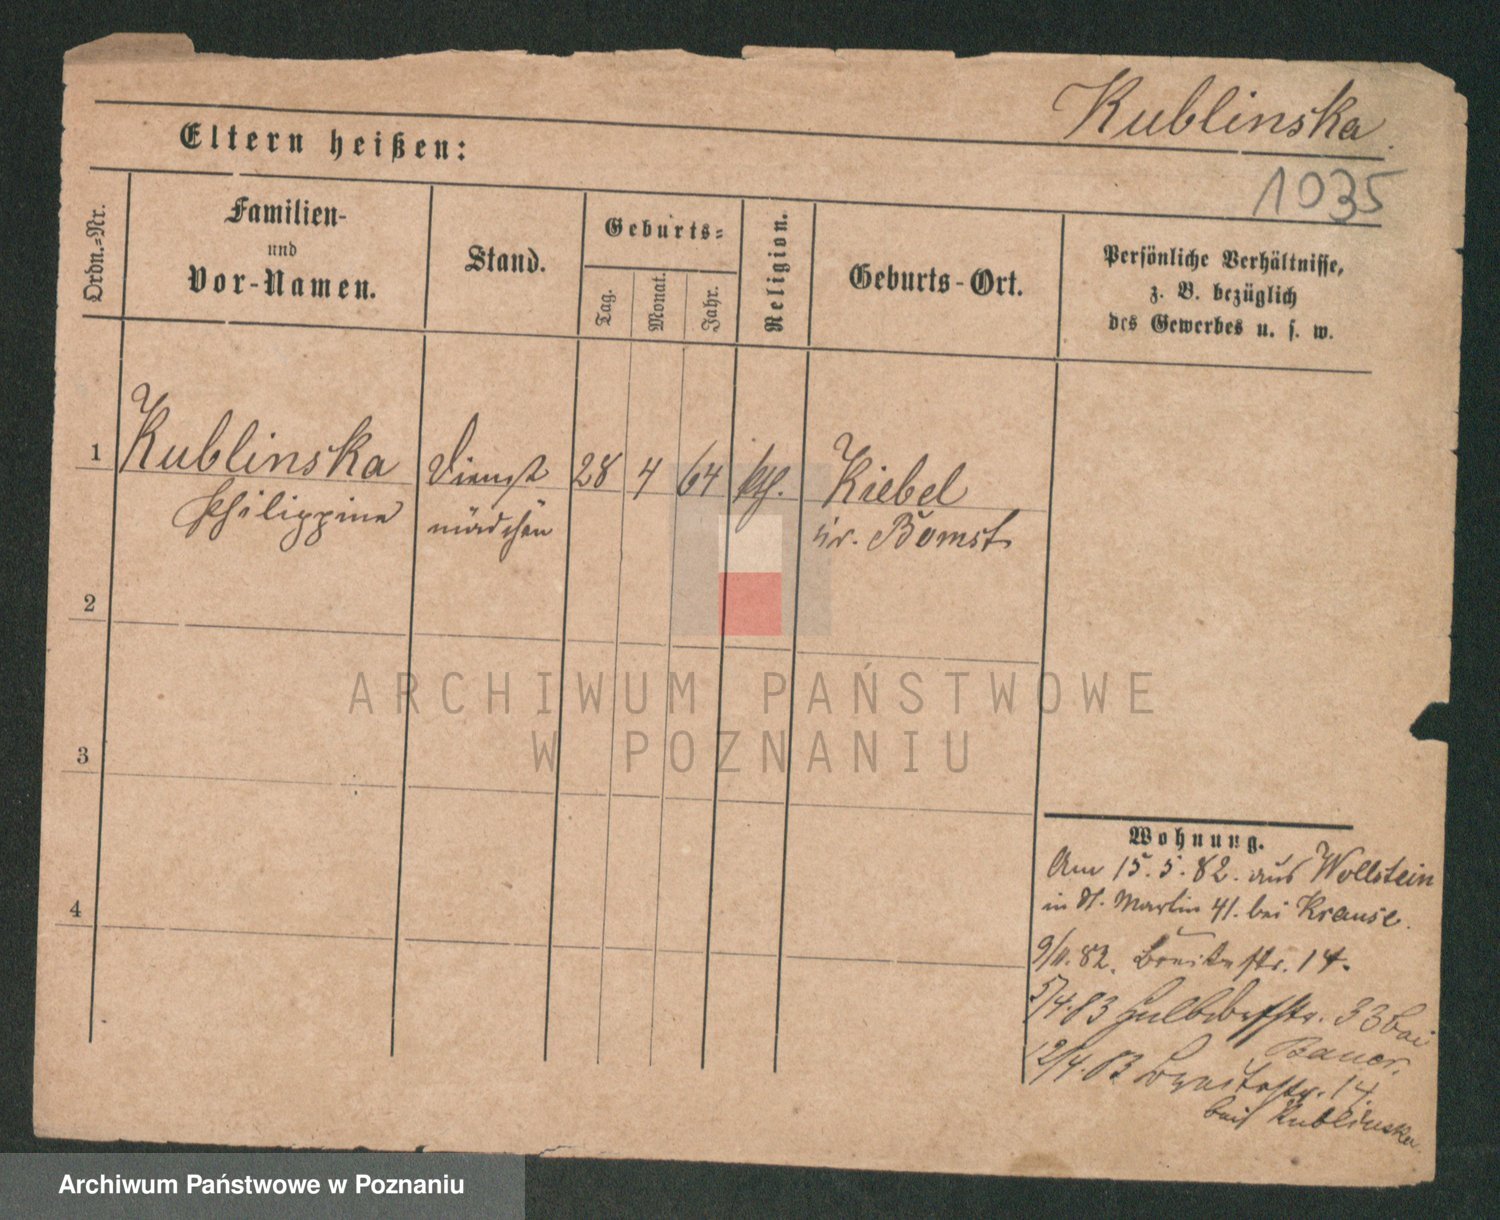 Kublinska
1035
Eltern heißen:
Ordn.-Nr.
Familien-
und
Vor-Namen.
Stand.
Geburts-
Tag.
Monat.
Jahr.
Religion.
Geburts-Ort.
Persönliche Verhältnisse,
z. B. bezüglich
des Gewerbes u. s. w.
1 Kublinska Dienst 28 4 64 kth. Kiebel
Philippine mädchen Kr. Bomst
2
3
4
ARCHIWUM PAŃSTWOWE
W POZNANIU
Wohnung.
Am 15.5.82. aus Wollstein
in St. Martin 41. bei Krause.
82. Breitestr. 14.
5/4.83 Halbdorfstr. 33 bei
Bauer.
12/4.83 Breitestr. 14.
bei Kublinska
Archiwum Państwowe w Poznaniu